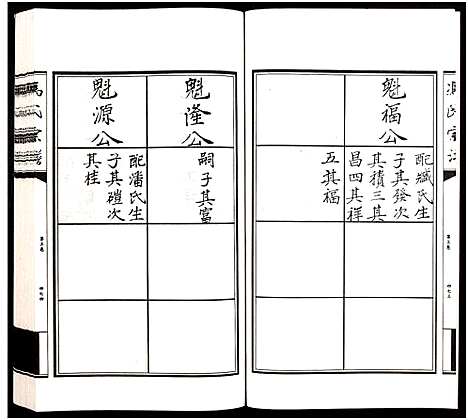 魁福公
配臧氏生
子其發次
其積三其
昌四其祥
五其福
魁隆公
嗣子其富
魁源公
配潘氏生
子其磑次
其桂